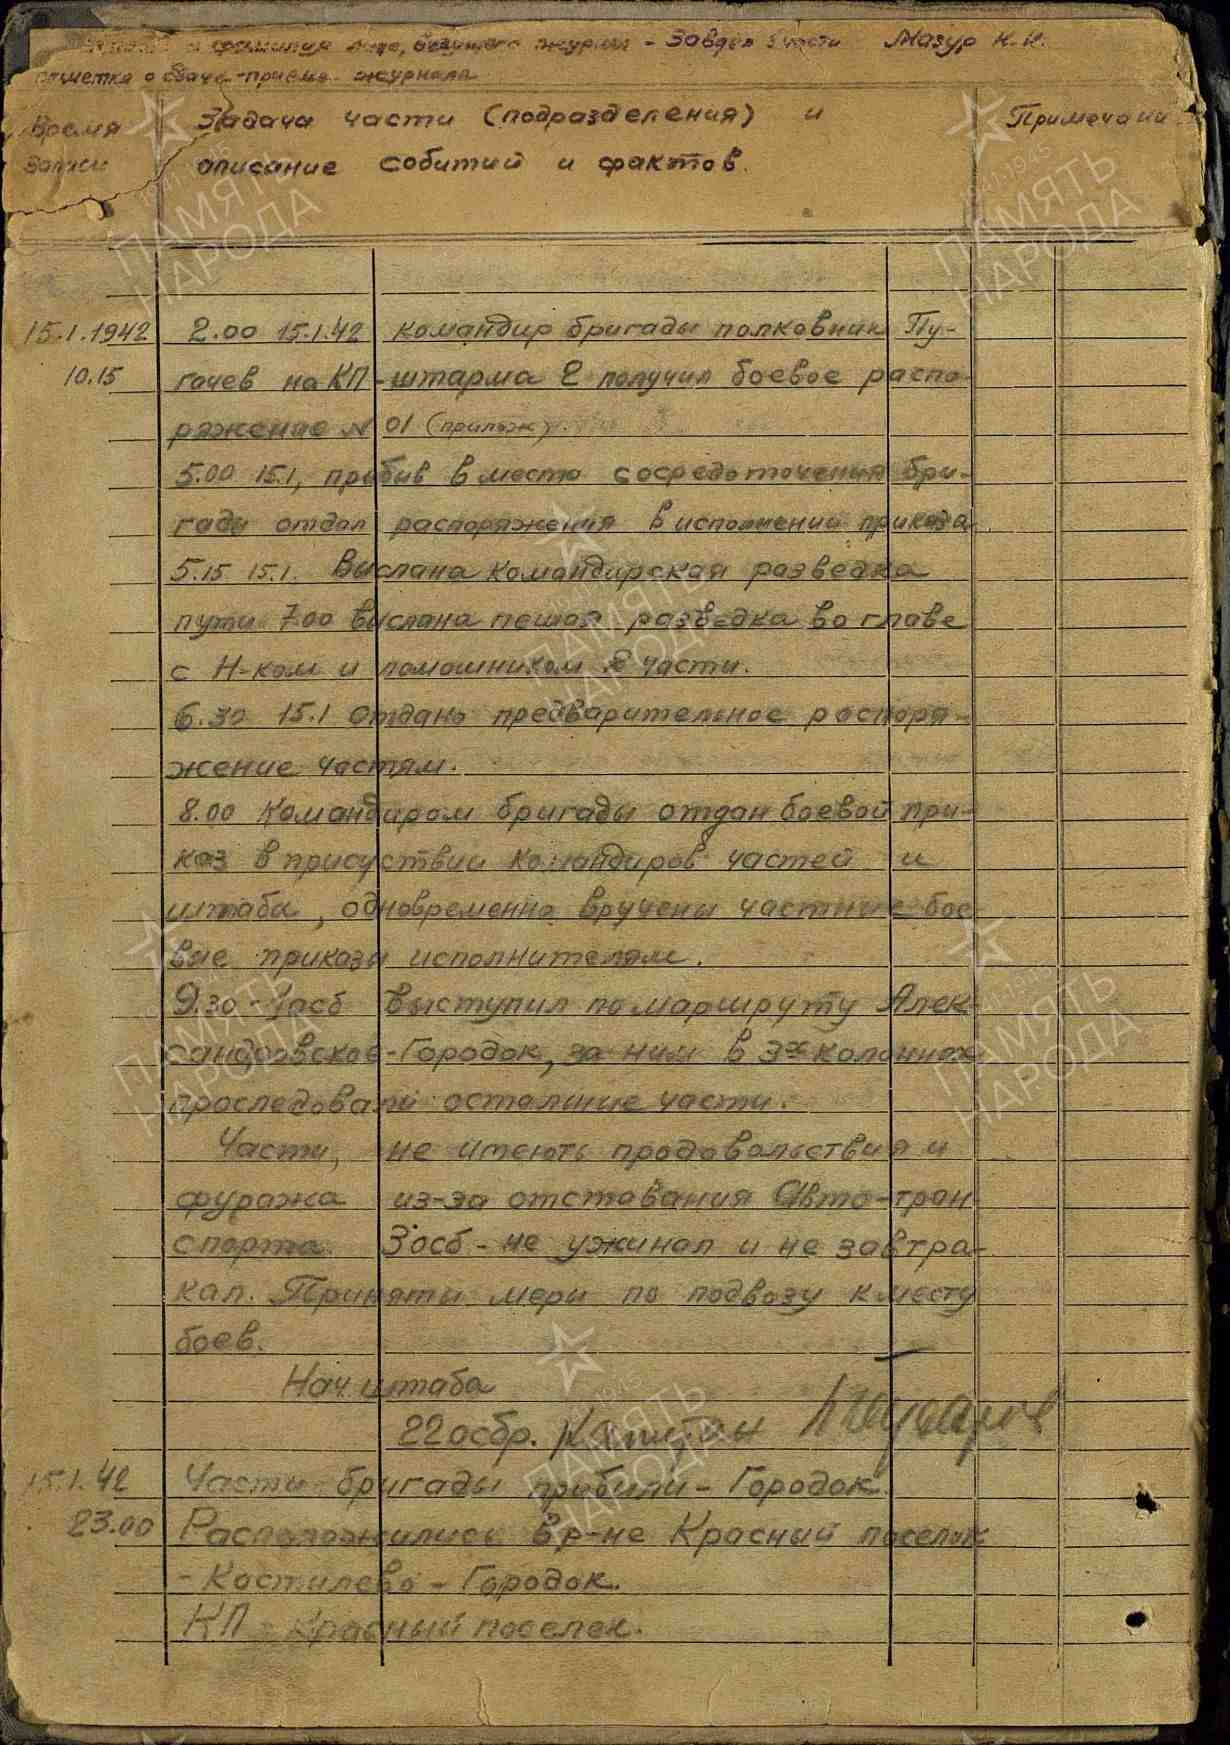 и фамилия лица, ведущего журнал - Завдел части Мазур Н.И.
отметка о сдаче-приеме журнала
Время Задача части (подразделения) и Примечани
записи описание событий и фактов.
15.1.1942 2.00 15.1.42 командир бригады полковник Пу-
10.15 гачев на КП-штарма 2 получил боевое распо-
ряжение № 01 (прилож).
5.00 15.1, прибыв в место сосредоточения бри-
гады отдал распоряжения в исполнении приказа.
5.15 15.1. Выслана командирская разведка
пути 7.00 выслана пешая разведка во главе
с Н-ком и помошником 2 части.
6.30 15.1 отдано предварительное распоря-
жение частям.
8.00 Командиром бригады отдан боевой при-
каз в присуствии командиров частей и
штаба, одновременно вручены частные бое-
вые приказы исполнителям.
9.30 - 1осб выступил по маршруту Алек-
сандровское-Городок, за ним в 3х колоннах
проследовали остальные части.
Части, не имеють продовольствия и
фуража из-за отставания Авто-тран
спорта. 3осб - не ужинал и не завтра-
кал. Приняты меры по подвозу к месту
боев.
Нач. штаба
22 осбр. Капитан
15.1.42 Части бригады прибыли - Городок.
23.00 Расположились в р-не Красный поселок
- Костылево - Городок.
КП - Красный поселек.
ПАМЯТЬ
НАРОДА
1941-1945